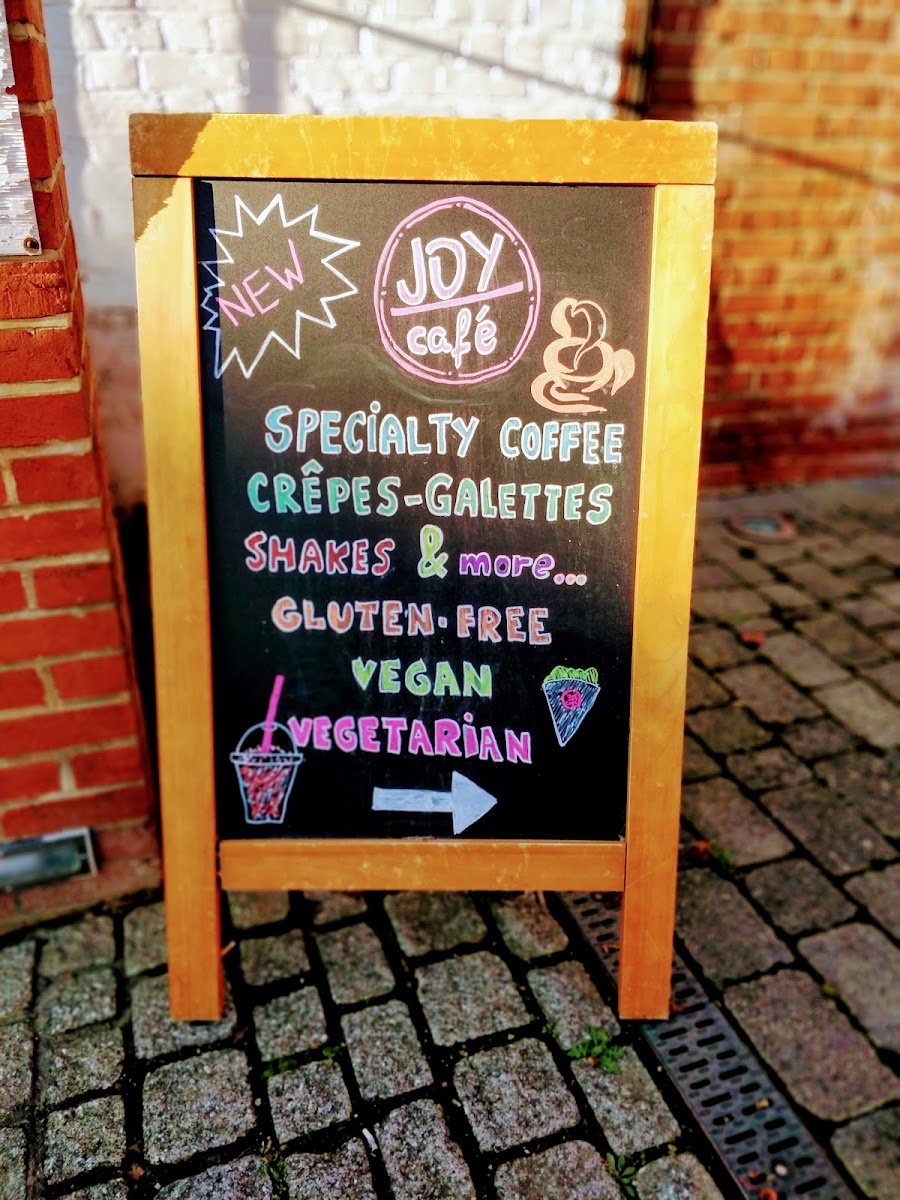 NEW
JOY
café
SPECIALTY COFFEE
CRÊPES-GALETTES
SHAKES & more...
GLUTEN-FREE
VEGAN
VEGETARIAN